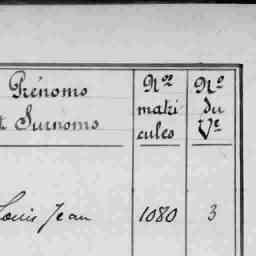 Prénoms
et Surnoms
Nos
matri
cules
No
du
Ve
Louis Jean
1080
3